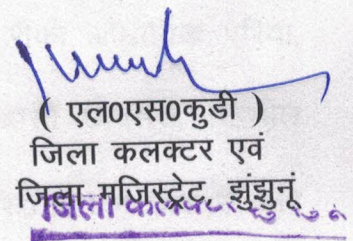 ( एल0एस0कुडी )
जिला कलक्टर एवं
जिला मजिस्ट्रेट, झुंझुनूं
जिला कलक्टर